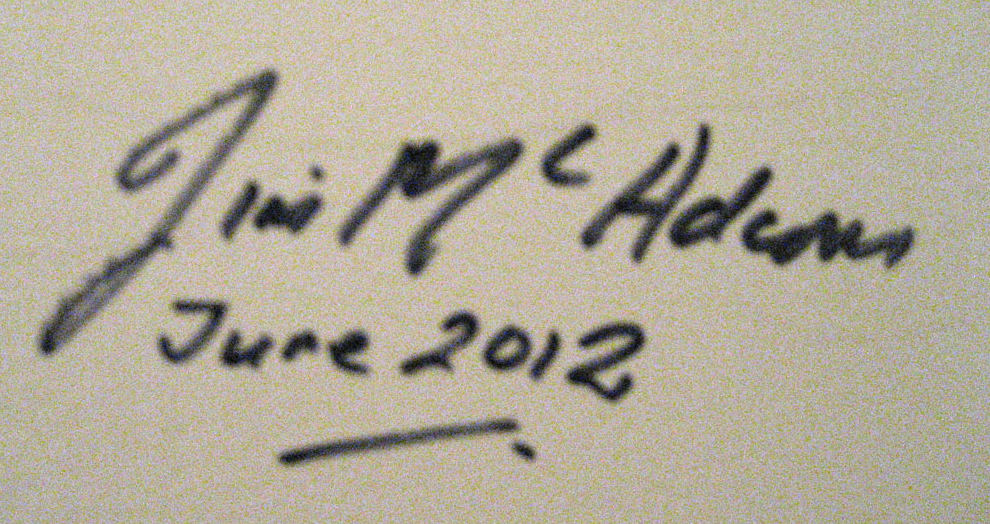 Jim McAdams
June 2012